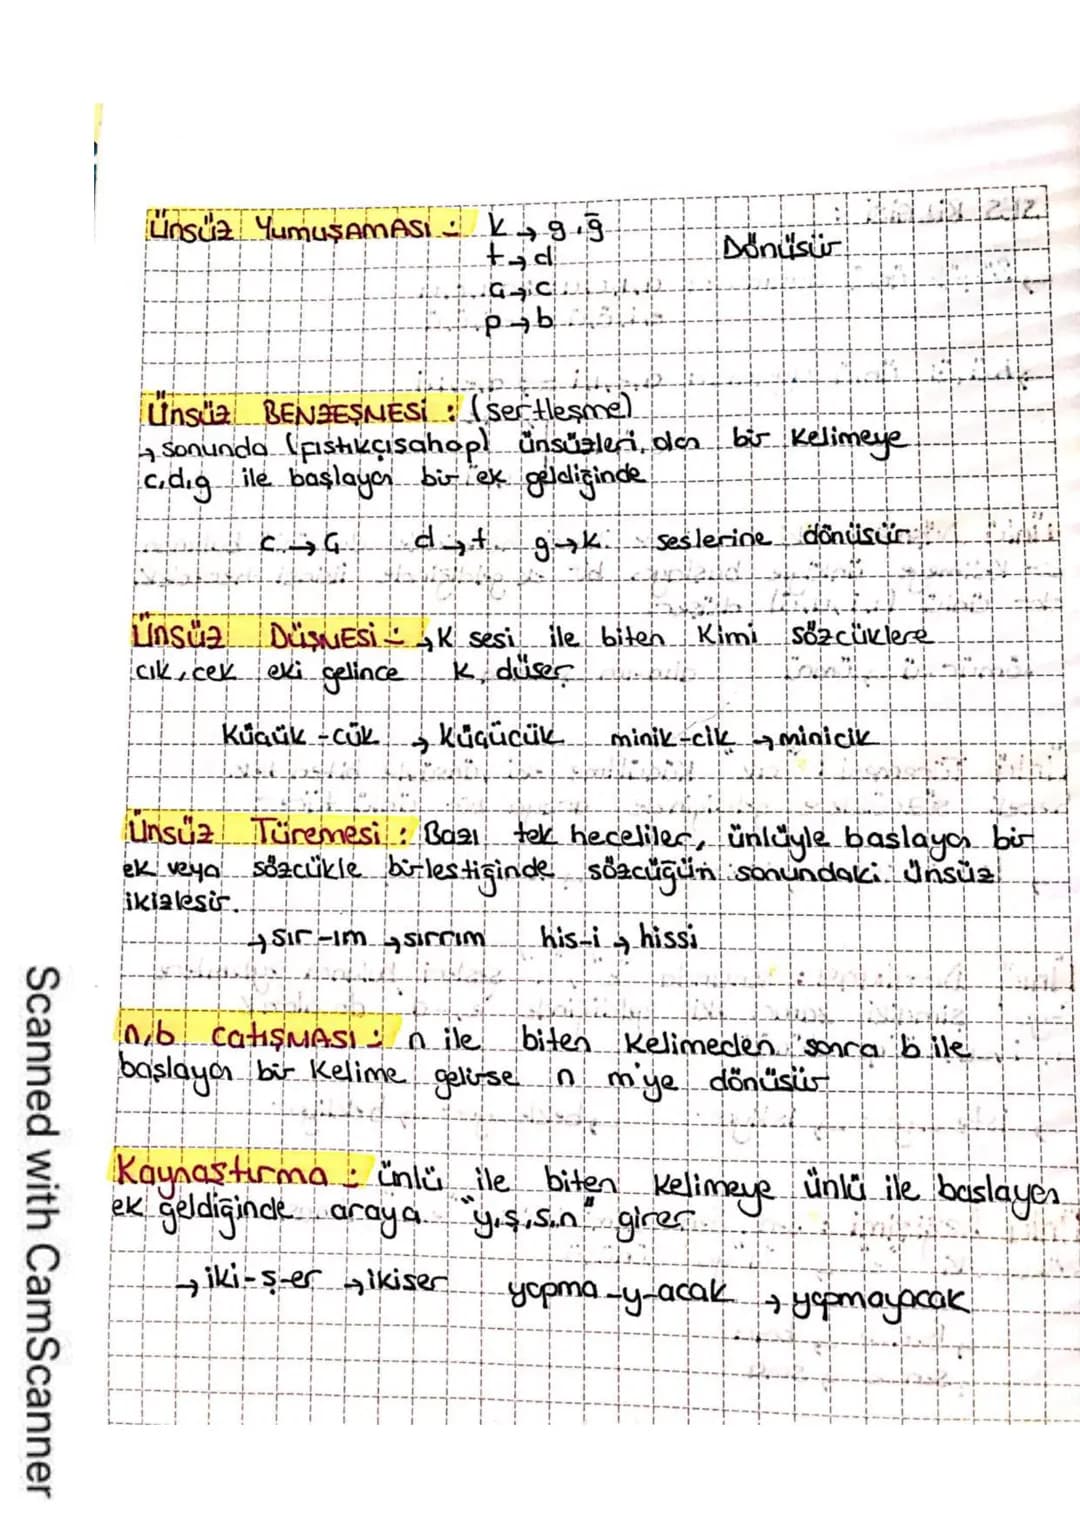 Ünsüz YumuşAMASI : k → g,ğ
t → d Dönüşür
ç → c
p → b
Ünsüz BENZEŞMESİ : (sertleşme)
→ sonunda (fıstıkçışahap) ünsüzleri olan bir kelimeye
c,d,g ile başlayan bir ek geldiğinde
c → ç d → t g → k seslerine dönüşür
Ünsüz DÜŞMESİ : → K sesi ile biten Kimi sözcüklere
cık, cek eki gelince k düşer
Küçük -cük → Küçücük minik-cik → minicik
Ünsüz Türemesi : Bazı tek heceliler, ünlüyle başlayan bir
ek veya sözcükle birleştiğinde sözcüğün sonundaki ünsüz
ikizleşir.
→ sır-ım → sırrım his-i → hissi
n,b ÇatışMASI : n ile biten kelimeden sonra b ile
başlayan bir Kelime gelirse n m'ye dönüşür
Kaynaştırma : ünlü ile biten kelimeye ünlü ile başlayan
ek geldiğinde araya "y,ş,s,n" girer
→ iki-ş-er → ikişer yapma-y-acak → yapmayacak
Scanned with CamScanner